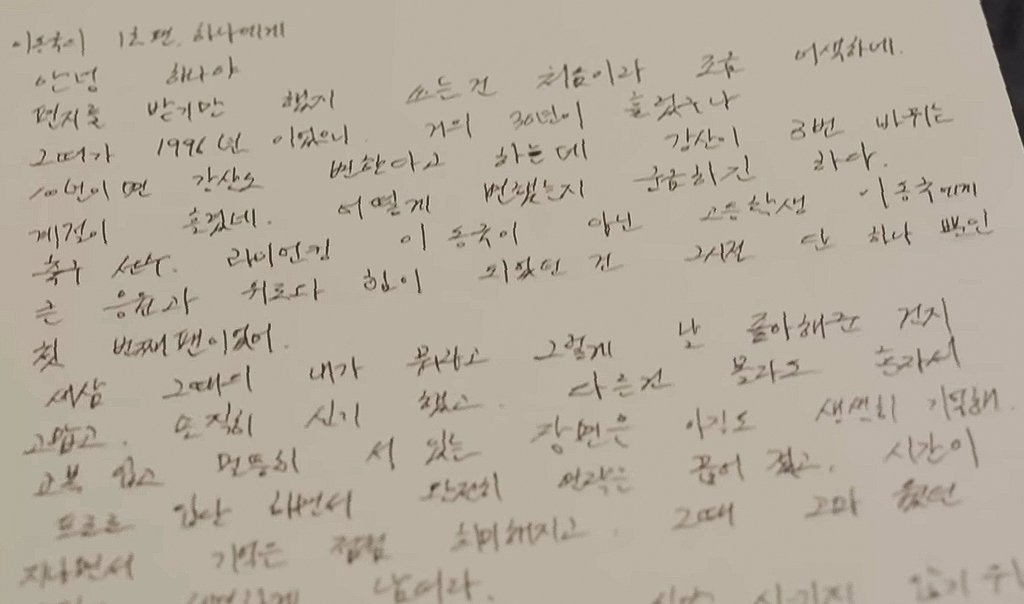 이동국이 1호팬. 하나에게
안녕 하나야
편지를 받기만 했지 쓰는건 처음이라 조금 어색하네.
그때가 1996년 이었으니 거의 30년이 흘렀구나
10년이면 강산도 변한다고 하는데 강산이 3번 바뀌는
계절이 흘렀네. 어떻게 변했는지 궁금하긴 하다.
축구 선수. 라이언킹 이동국이 아닌 고등학생 이동국에게
큰 응원과 위로와 힘이 되었던 건 그시절 단 하나 뿐인
첫 번째 팬이었어.
새삼 그때의 내가 뭐라고 그렇게 날 좋아해준 건지
고맙고. 솔직히 신기 했고. 다른건 몰라도 혼자서
교복 입고 멀뚱히 서 있는 장면은 아직도 생생히 기억해.
프로로 입단 하면서 완전히 연락은 끊어 졌고. 시간이
지나면서 기억은 점점 희미해지고. 그때 고마 웠던
남더라.